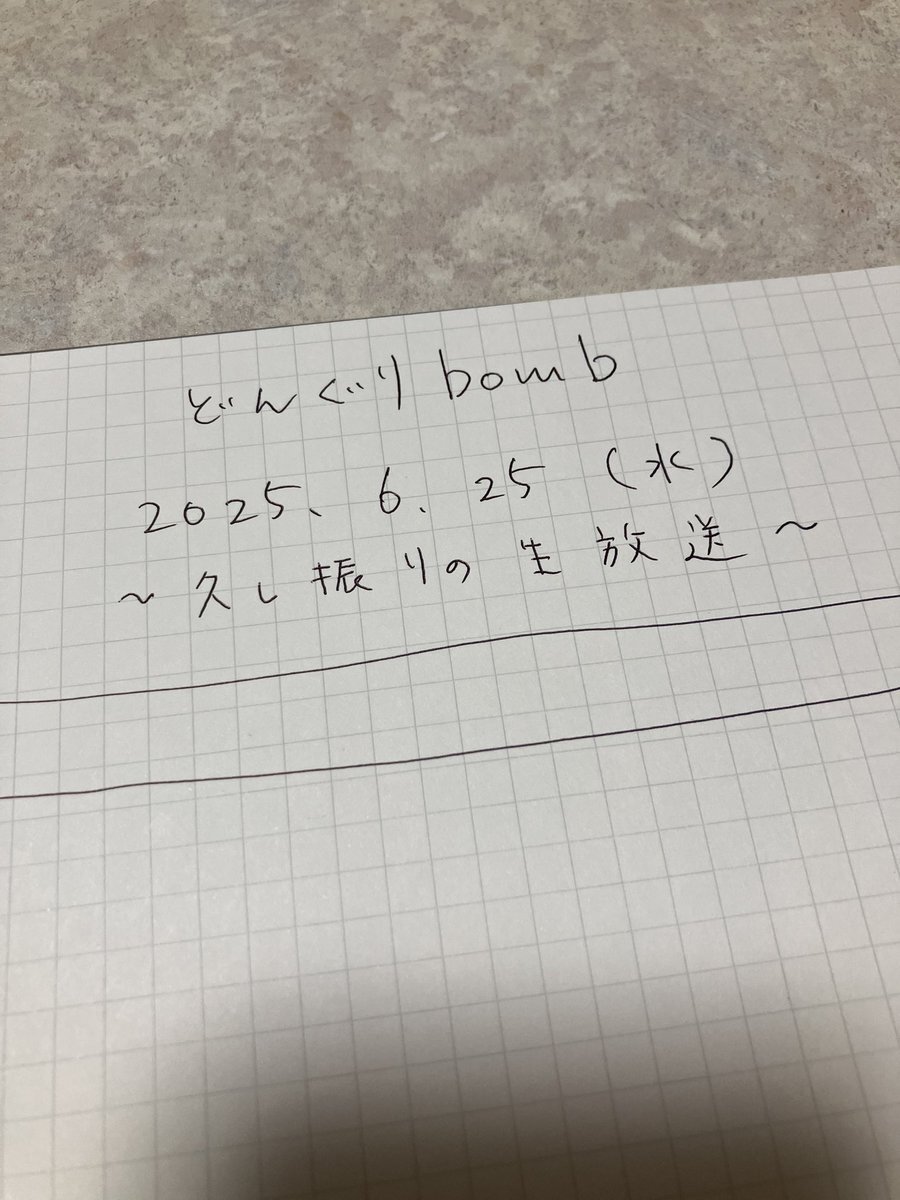 どんぐりbomb
2025、6、25（水）
～久し振りの生放送～